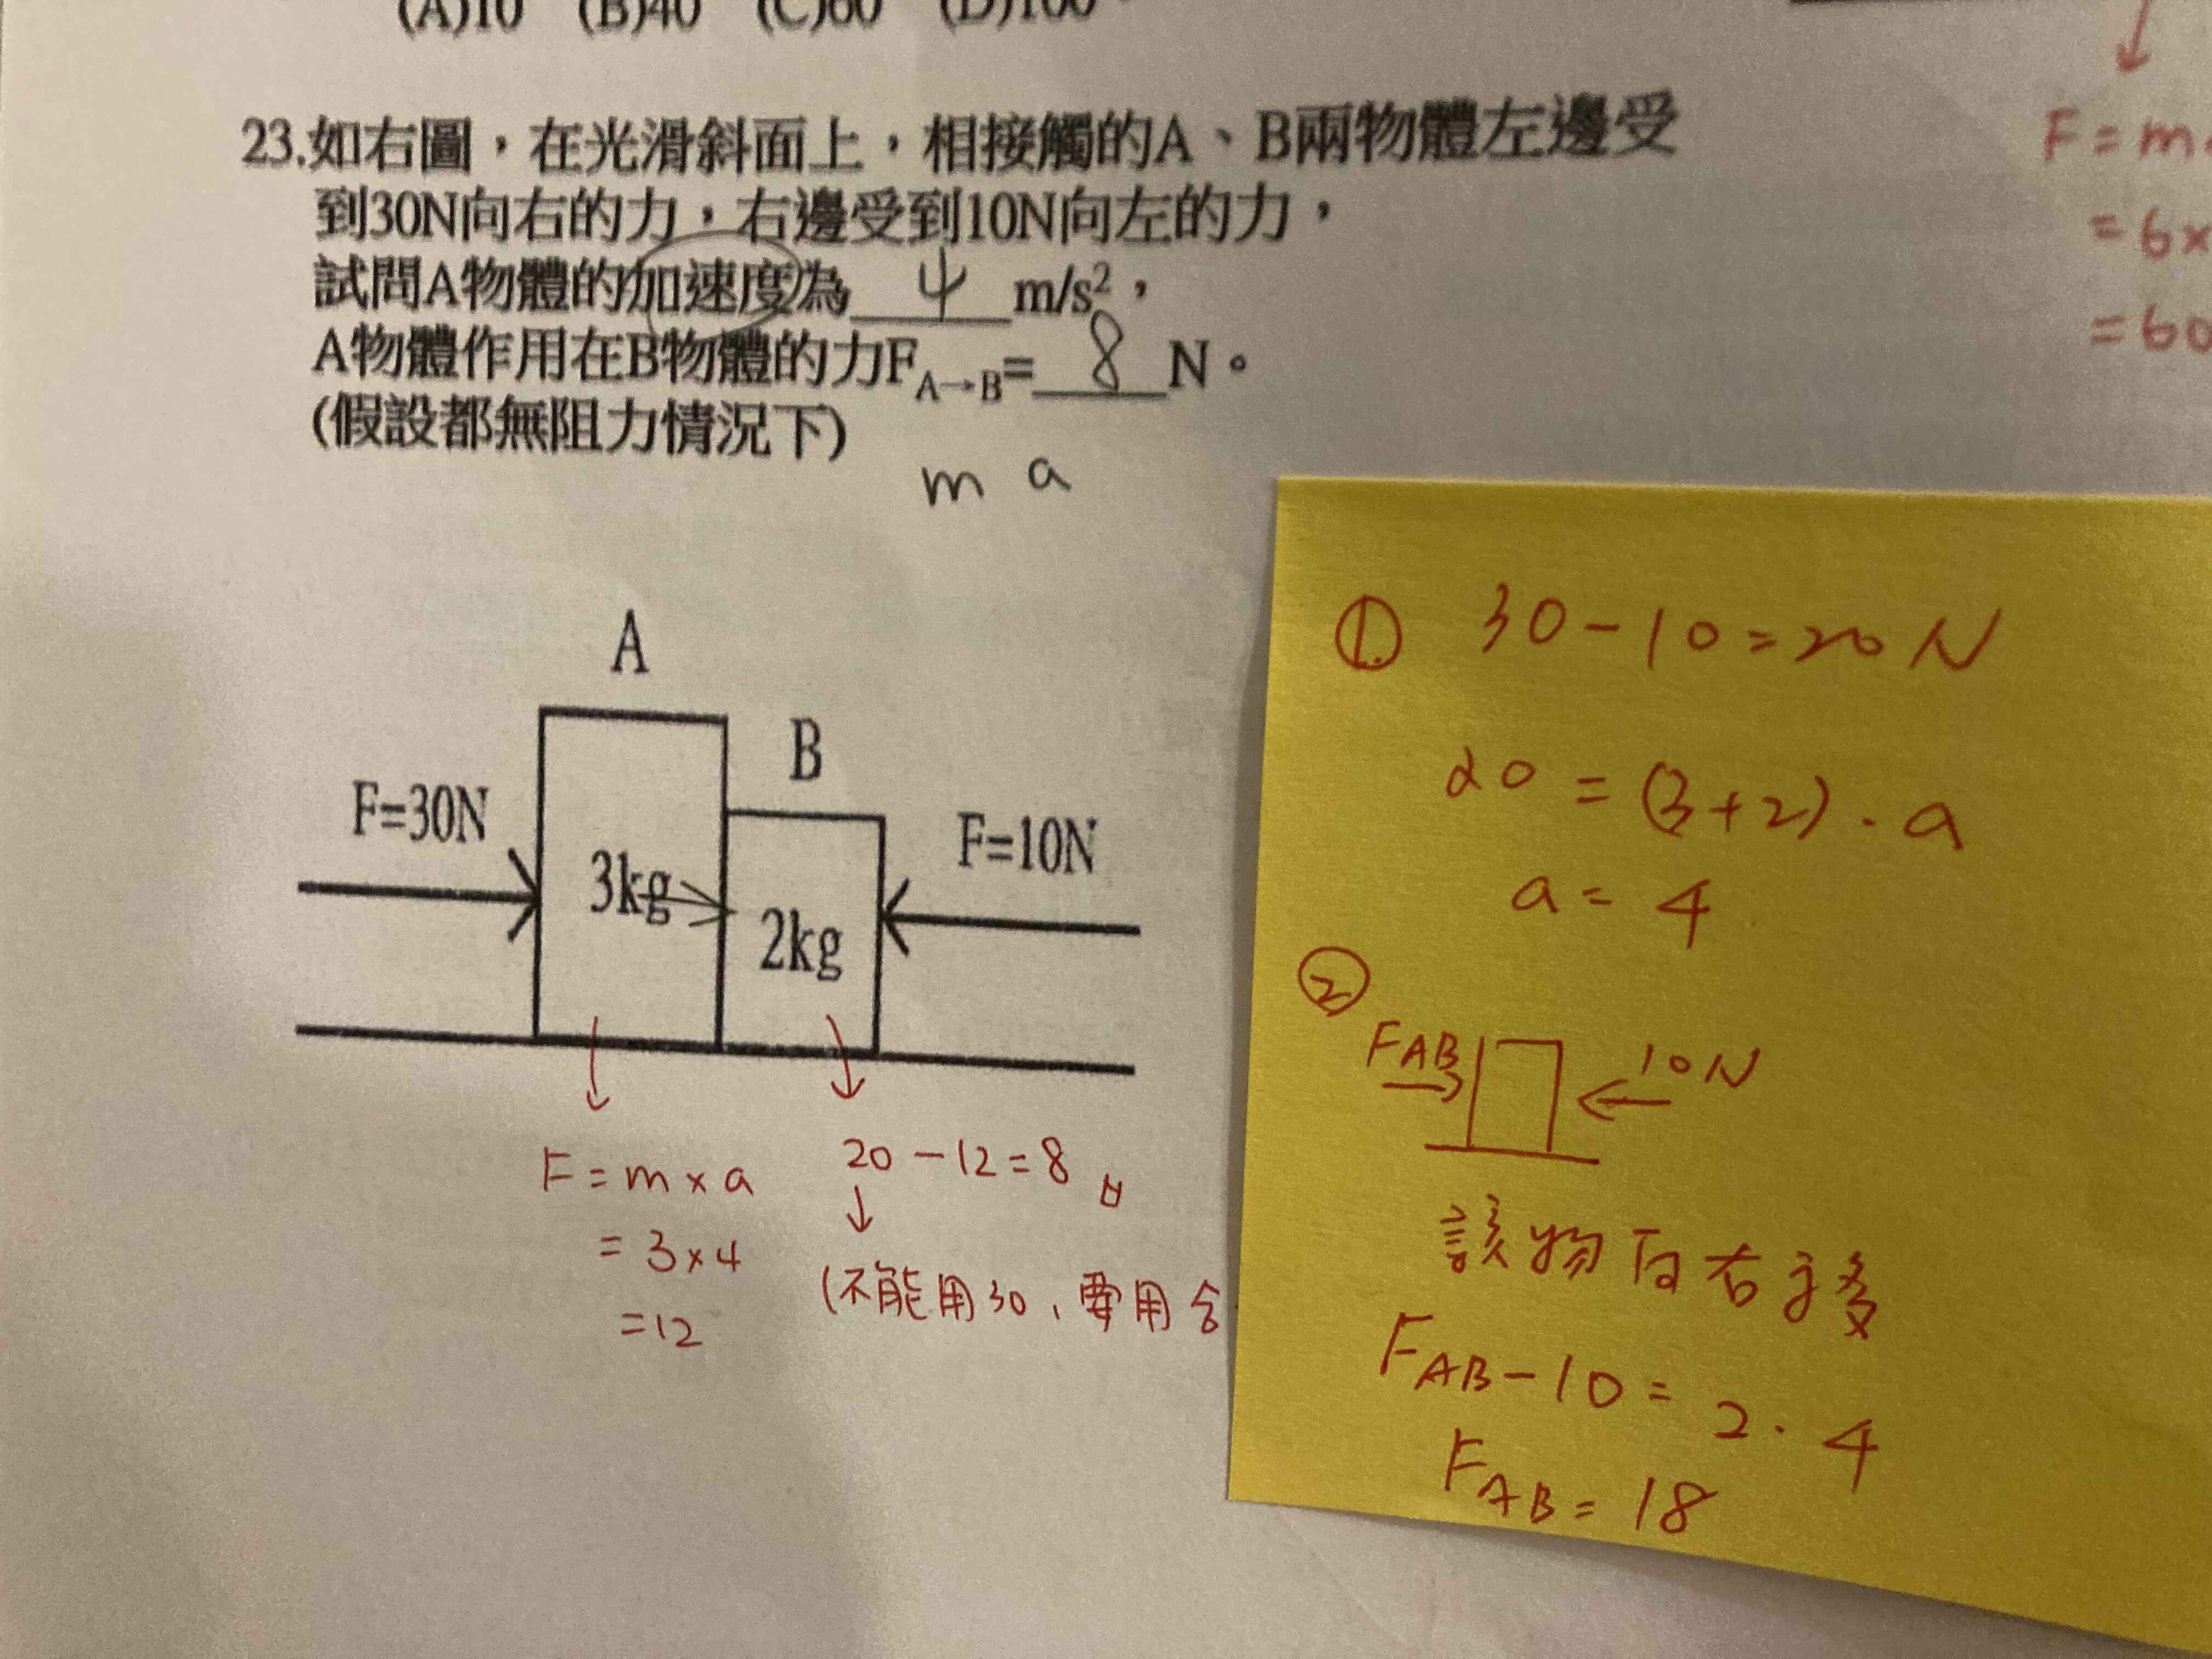 (A)10 (B)40 (C)60 (D)100。
23.如右圖，在光滑斜面上，相接觸的A、B兩物體左邊受
到30N向右的力，右邊受到10N向左的力，
試問A物體的加速度為 4 m/s²，
A物體作用在B物體的力F_A→B= 8 N。
(假設都無阻力情況下)
m a
A
B
F=30N
F=10N
3kg
2kg
F = m × a
= 3×4
=12
20 - 12 = 8
(不能用30、要用合
F = m
= 6×
= 60
① 30 - 10 = 20 N
20 = (3+2) · a
a = 4
②
F_AB
10N
該物向右移
F_AB - 10 = 2 · 4
F_AB = 18